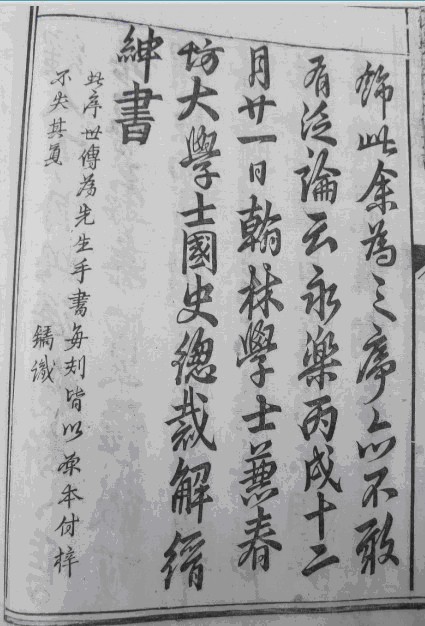 飾此余為之序亦不敢
有泛論云永樂丙戌十二
月廿一日翰林學士蕪春
坊大學士國史總裁解縉
紳書
此序世傳為先生手書每刻皆以原本付梓
不失其真
鎬識